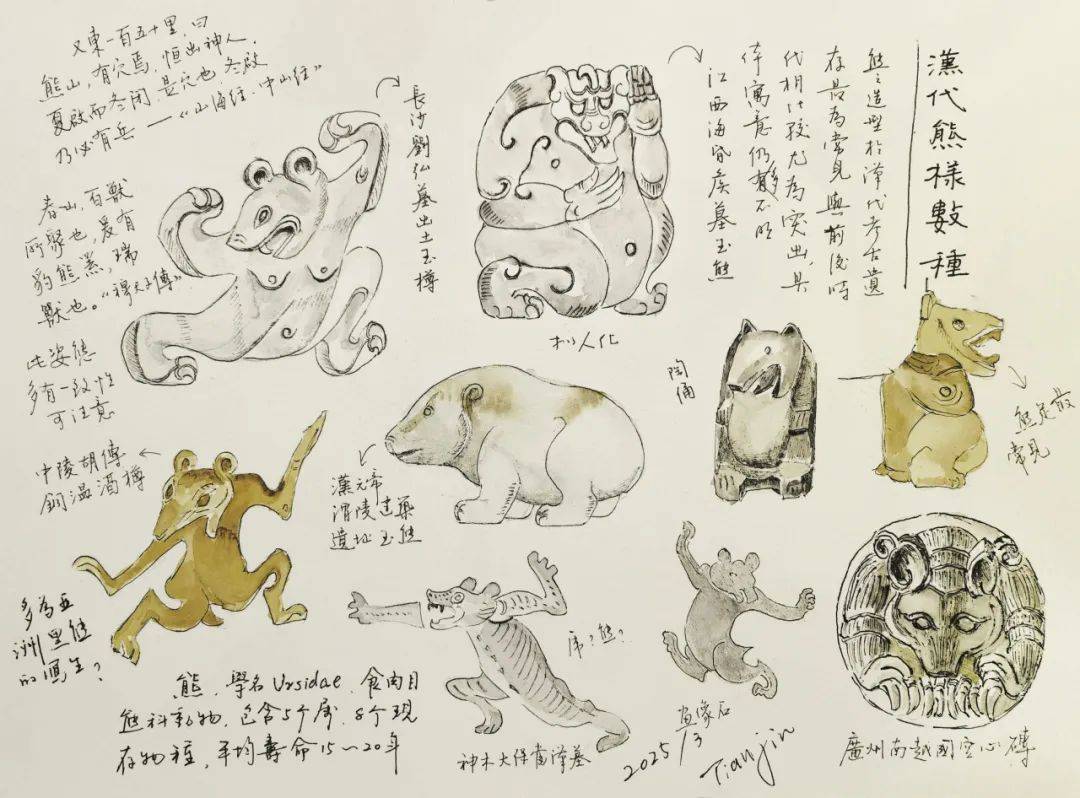 漢代熊樣數種
熊之造型於漢代考古遺
存最為常見與前後時
代相比較尤為突出,具
寓意仍不明
江西海昏侯墓玉熊
長沙劉弘墓出土玉樽
又東一百五十里,曰
熊山,有穴焉,恒出神人.
夏啟而冬閉.是穴也冬啟
乃必有兵 —《山海經·中山經》
春山,百獸
所聚也,爰有
豹熊羆,瑞
獸也。"穆天子傳"
此姿態
多有一致性
可注意
拟人化
陶俑
常見
中陵胡傅
銅溫酒樽
漢元帝
渭陵建築
遺址玉熊
多為亞
洲黑熊
的寫生?
虎?熊?
熊,學名Ursidae,食肉目
熊科動物,包含5个屬,8个現
存物種,平均壽命15~20年
神木大保當漢墓
畫像石
2025/3
Tianjin
廣州南越國空心磚